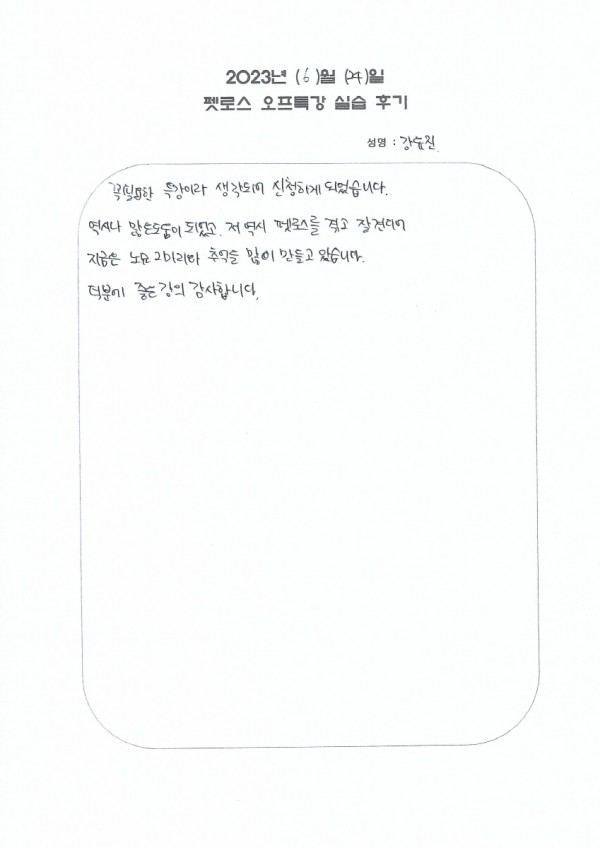 2023년 (6)월 (24)일
펫로스 오프특강 실습 후기
성명 : 강유진
꼭필요한 특강이라 생각되어 신청하게 되었습니다.
역시나 많은도움이 되었고. 저 역시 펫로스를 겪고 잘견디며
지금은 노묘 2마리와 추억을 많이 만들고 있습니다.
덕분에 좋은강의 감사합니다.